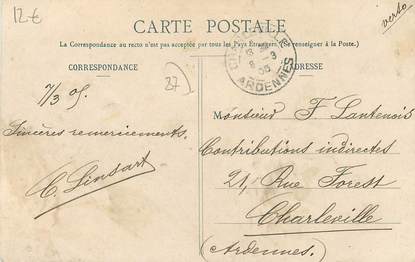 12 €
verso
CARTE POSTALE
La Correspondance au recto n'est pas acceptée par tous les Pays Étrangers. (Se renseigner à la Poste.)
CORRESPONDANCE
ADRESSE
CHARLEVILLE
8 -3
05
ARDENNES
37
7/3 05.
Sincères remerciements.
C. Linsart
Monsieur F Lantenois
Contributions indirectes
21, Rue Forest
Charleville
(Ardennes.)